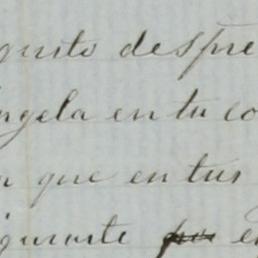 gusto despre
ngela en tu co
que en tus
gurarte e